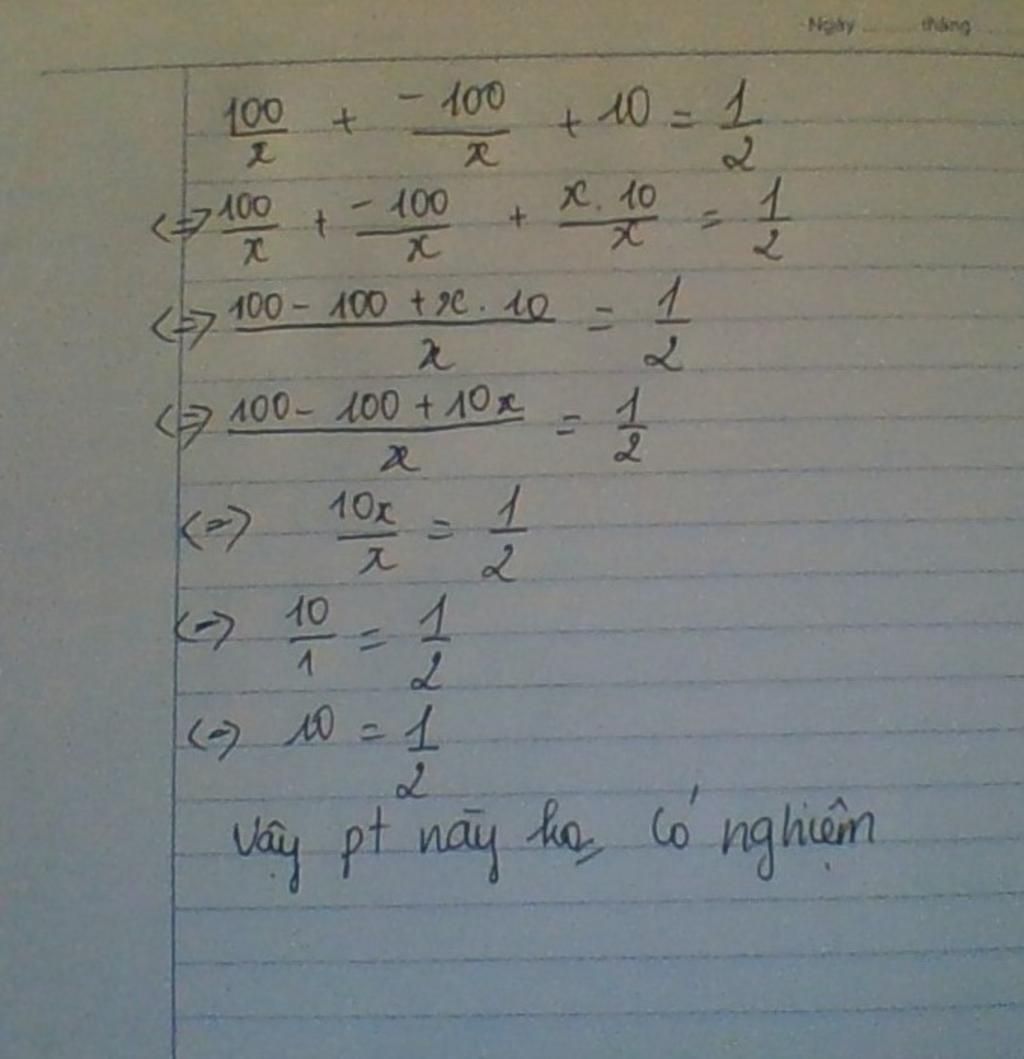 Ngày ........ tháng ....
100/x + -100/x + 10 = 1/2
<=> 100/x + -100/x + x.10/x = 1/2
<=> 100 - 100 + x.10/x = 1/2
<=> 100 - 100 + 10x/x = 1/2
<=> 10x/x = 1/2
<=> 10/1 = 1/2
<=> 10 = 1/2
Vậy pt này ko có nghiệm